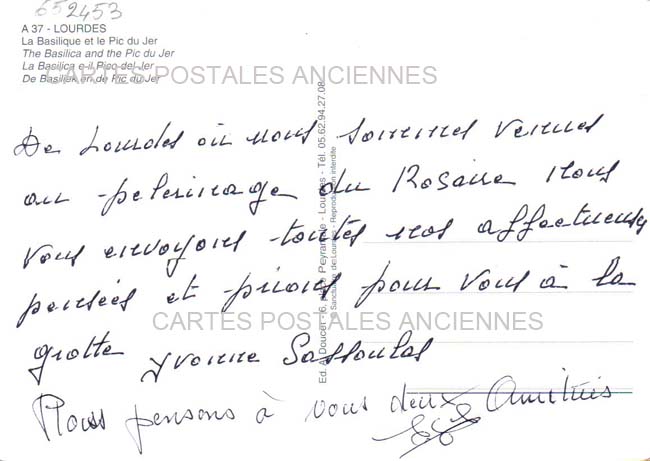 652453
A 37 - LOURDES
La Basilique et le Pic du Jer
The Basilica and the Pic du Jer
La Basilica e il Pico del Jer
De Basiliek en de Pic du Jer
CARTES POSTALES ANCIENNES
De Lourdes où nous sommes venues
au pelerinage du Rosaire nous
vous envoyons toutes nos affectueuses
pensées et prions pour vous à la
CARTES POSTALES ANCIENNES
grotte Yvonne
Nous pensons à vous deux Amitiés
Ed. A. Doucet - 6, place Peyramale - Lourdes - Tél. 05.62.94.27.08
© Sanctuaire de Lourdes - Reproduction interdite